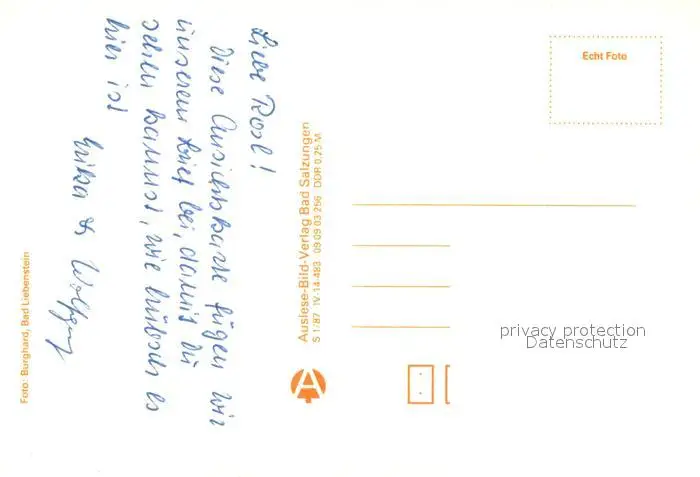 Liebe Rosl!
Diese Ansichtskarte fügen wir
unserem Brief bei, damit Du
sehen kannst, wie hübsch es
hier ist
Erika & Wolfgang
Foto: Burghard, Bad Liebenstein
Auslese-Bild-Verlag Bad Salzungen
S 1/87 IV-14-483 09 09 03 256 DDR 0,25 M
A
Echt Foto
privacy protection
Datenschutz